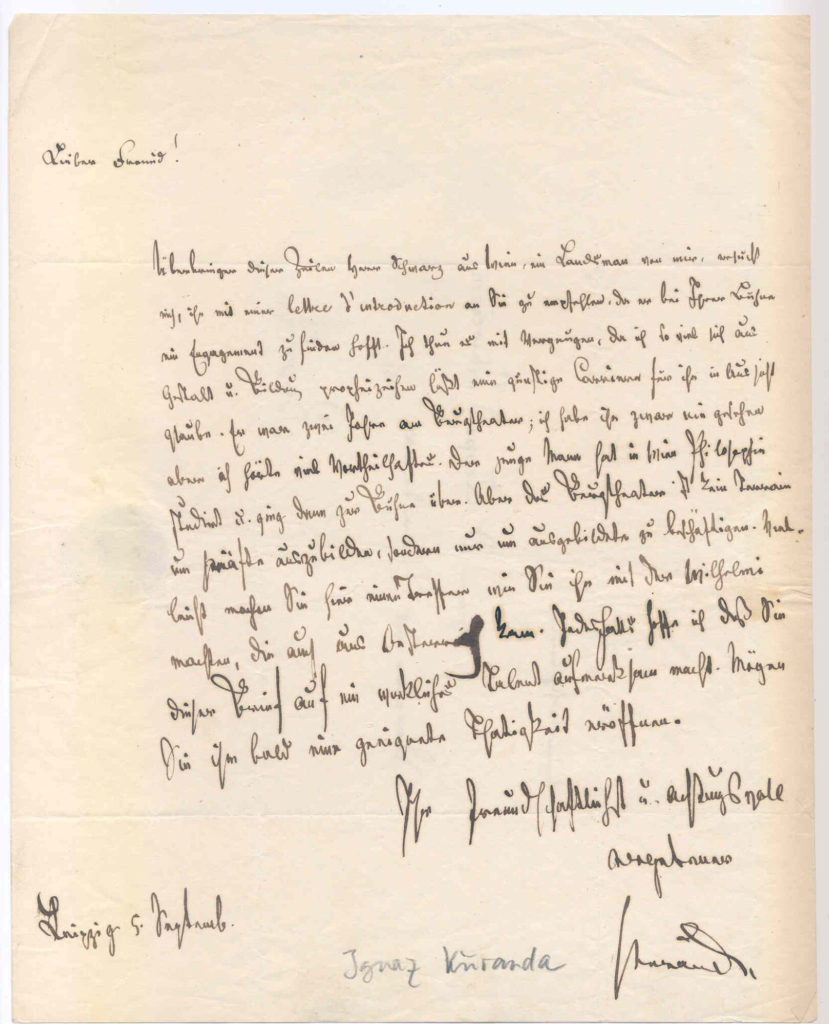 Lieber Freund!
Überbringer dieser Zeilen Herr Schwarz aus Wien, ein Landsman von mir, ersucht
mich, ihn mit einer lettre d'introduction an Sie zu empfehlen, da er bei Ihrer Bühne
ein Engagement zu finden hofft. Ich thue es mit Vergnugen, da ich so viel sich aus
Gestalt u. Bildung propheizeihen läßt eine günstige Carriere für ihn in Aussicht
glaube. Er war zwei Jahre am Burgtheater; ich habe ihn zwar nie gesehen
aber ich hörte viel Vortheilhaftes. Der junge Mann hat in Wien Philosophie
studirt u. ging dann zur Bühne über. Aber das Burgtheater ist kein Terrain
um Kräfte auszubilden, sondern nur um ausgebildete zu beschäftigen. Viel-
leicht machen Sie hier einen Treffer wie Sie ihn mit der Wilhelmi
machten, die auch aus Oesterreich kam. Jedesfalls hoffe ich daß Sie
dieser Brief auf ein wirkliches Talent aufmerksam macht. Mögen
Sie ihm bald eine geeignete Thätigkeit eröffnen.
Ihr freundschaftlichst u. achtungsvoll
ergebener
Leipzig 5. Septemb.
Kuranda
Ignaz Kuranda